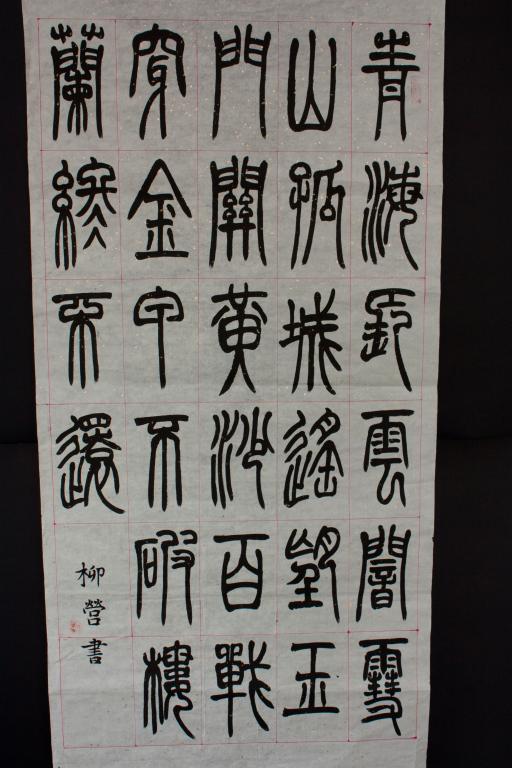 青海長雲闇雪
山孤城遙望玉
門關黃沙百戰
穿金甲不破樓
蘭終不還
柳營書